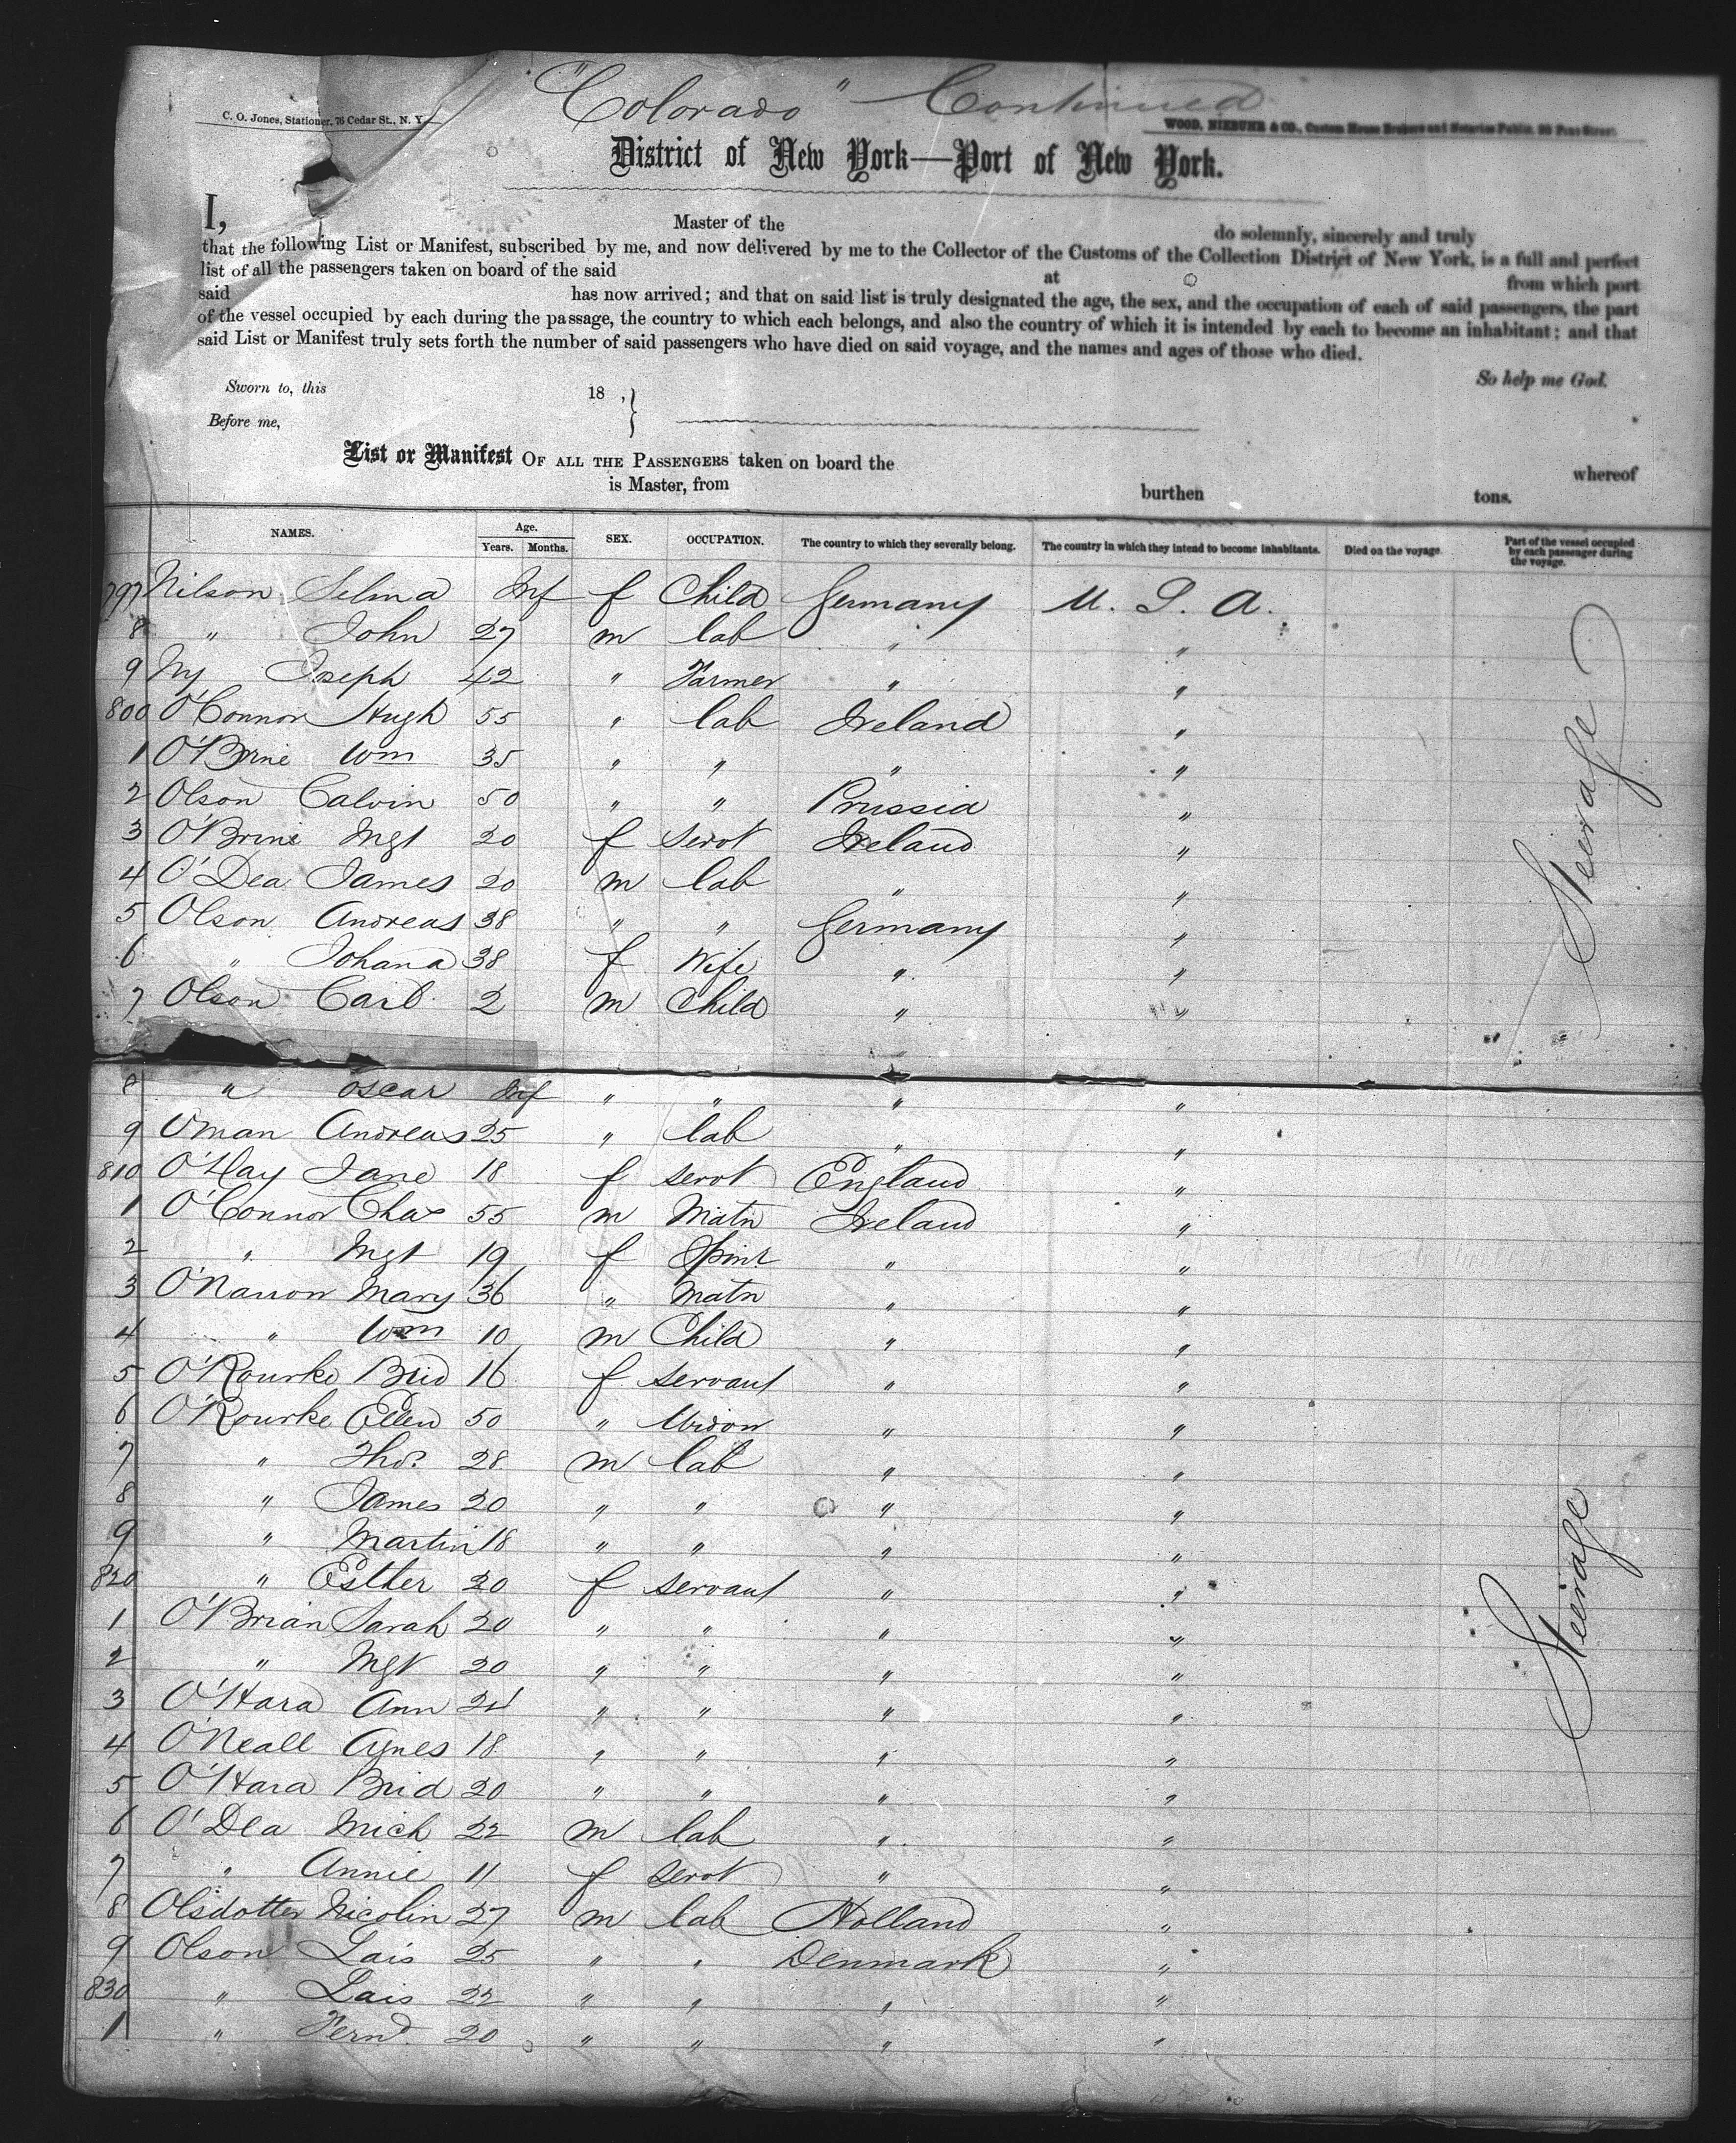 "Colorado" Continued
C. O. Jones, Stationer, 76 Cedar St., N. Y.
WOOD, NIEBUHR & CO., Custom House Brokers and Notaries Public, 90 Pine Street.
District of New York—Port of New York.
I, Master of the do solemnly, sincerely and truly
that the following List or Manifest, subscribed by me, and now delivered by me to the Collector of the Customs of the Collection District of New York, is a full and perfect
list of all the passengers taken on board of the said at from which port
said has now arrived; and that on said list is truly designated the age, the sex, and the occupation of each of said passengers, the part
of the vessel occupied by each during the passage, the country to which each belongs, and also the country of which it is intended by each to become an inhabitant; and that
said List or Manifest truly sets forth the number of said passengers who have died on said voyage, and the names and ages of those who died.
So help me God.
Sworn to, this 18 ,}
Before me,
List or Manifest OF ALL THE PASSENGERS taken on board the whereof
is Master, from burthen tons.
NAMES. Age. Years. Months. SEX. OCCUPATION. The country to which they severally belong. The country in which they intend to become inhabitants. Died on the voyage. Part of the vessel occupied by each passenger during the voyage.
797 Nilson Selma Inf f Child Germany U. S. A.
8 " John 27 m lab " "
9 Ny Joseph 42 " Farmer " "
800 O'Connor Hugh 55 " lab Ireland "
1 O'Brine Wm 35 " " " "
2 Olson Calvin 50 " " Prussia "
3 O'Brine Mgt 20 f Servt Ireland "
4 O'Dea James 20 m lab " "
5 Olson Andreas 38 " " Germany "
6 " Johana 38 f Wife " "
7 Olson Carl 2 m Child " "
Steerage
8 " Oscar Inf " " " "
9 Oman Andreas 25 " lab " "
810 O'Hay Jane 18 f servt England "
1 O'Connor Chas 55 m Matn Ireland "
2 " Mgt 19 f Spinr " "
3 O'Narron Mary 36 " Matn " "
4 " Wm 10 m Child " "
5 O'Rourke Brid 16 f servant " "
6 O'Rourke Ellen 50 " Widow " "
7 " Thos. 28 m lab " "
8 " James 20 " " " "
9 " Martin 18 " " " "
820 " Esther 20 f servant " "
1 O'Brian Sarah 20 " " " "
2 " Mgt 20 " " " "
3 O'Hara Ann 24 " " " "
4 O'Neall Agnes 18 " " " "
5 O'Hara Brid 20 " " " "
6 O'Dea Mich 22 m lab " "
7 " Annie 11 f servt " "
8 Olsdotter Nicolin 27 m lab Holland "
9 Olson Lais 25 " " Denmark "
830 " Lais 22 " " " "
1 " Fernd. 20 " " " "
Steerage